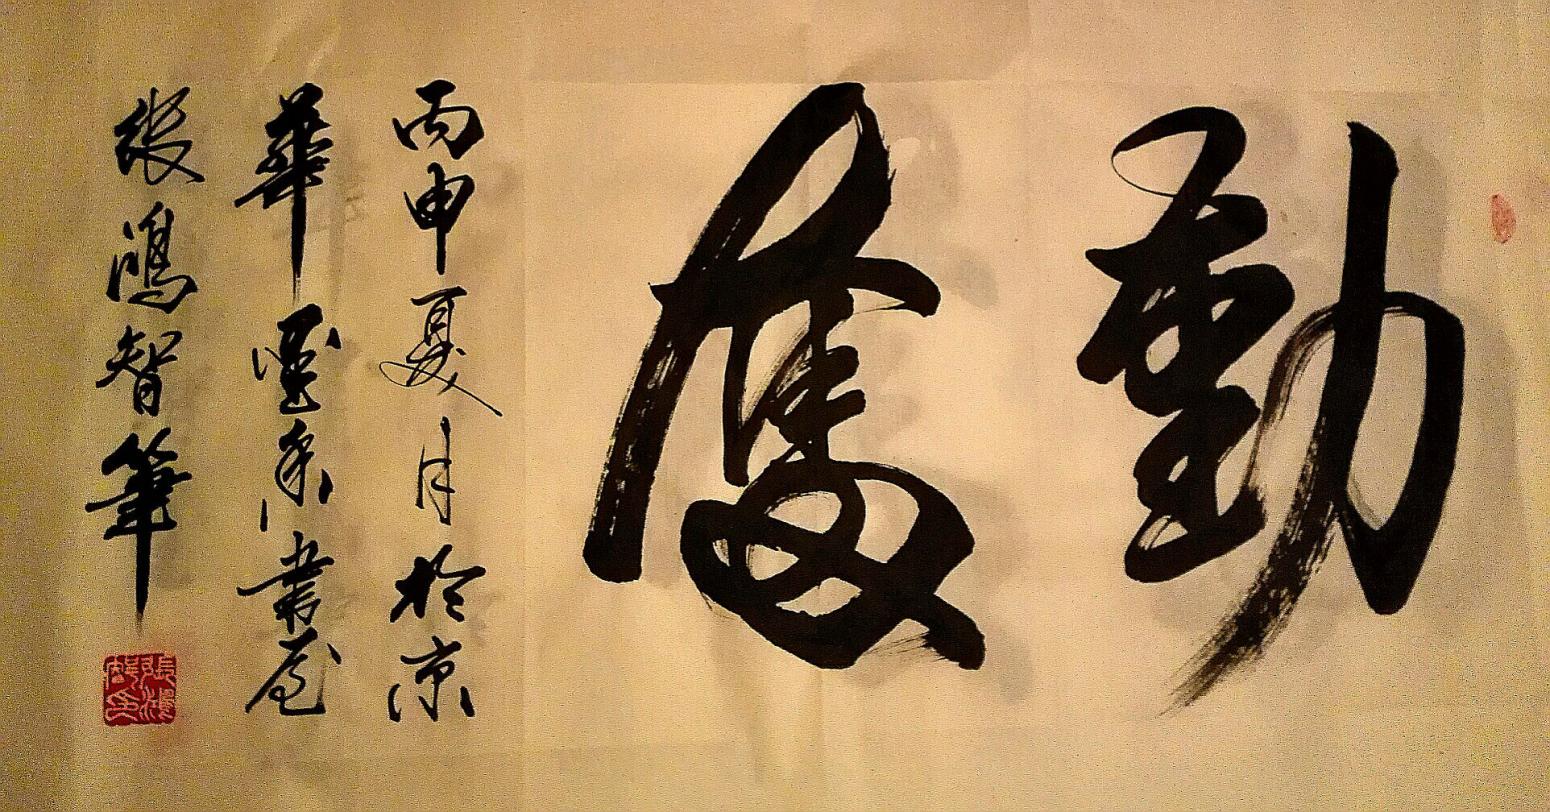 勤奮
丙申夏月於京
華墨香書屋
張鴻智筆
張鴻智印